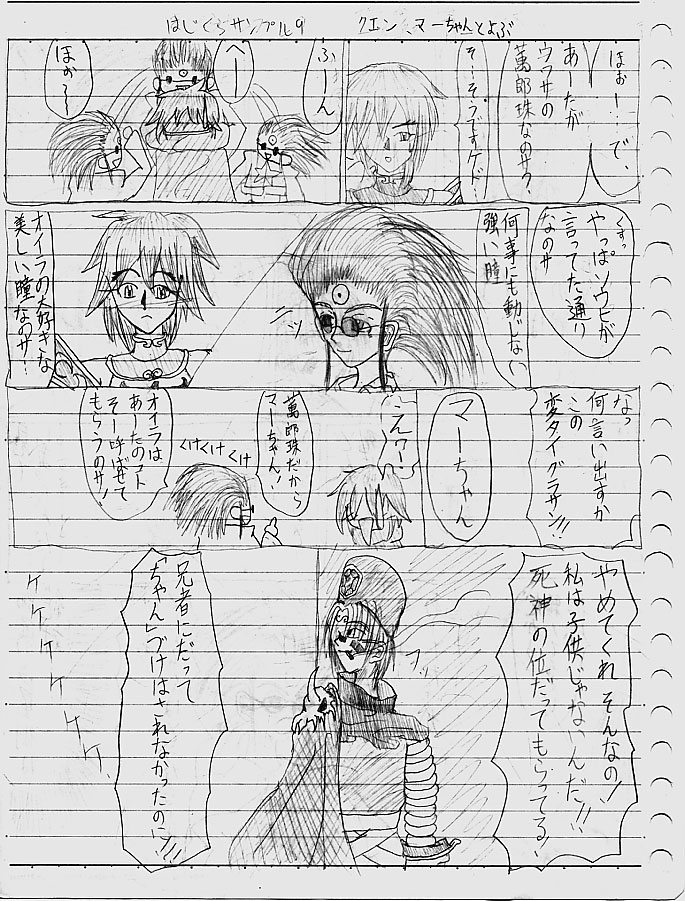 はじぐらサンプル9　クエン、マーちゃんとよぶ
ほぉー…で、
あーたが
ウワサの
萬郎珠なのサ?
そーそうですケド…
ふーん
へー
ほぉ〜〜
くすっ
やっぱソウヒが
言ってた通り
なのサ
何事にも動じない
強い瞳
ニッ
オイラの大好きな
美しい瞳なのサ…
なっ
何言い出すか
この
変タイグラサン!!
マーちゃん
萬郎珠だから
マーちゃん!
くけ くけ くけ
オイラは
あーたのコト
そー呼ばせて
もらうのサ!
やめてくれ そんなの!
私は子供じゃないんだ!!
死神の位だってもらってる!
フッ
兄者にだって
「ちゃん」づけはされなかったのに!!!
ケケケケケケ